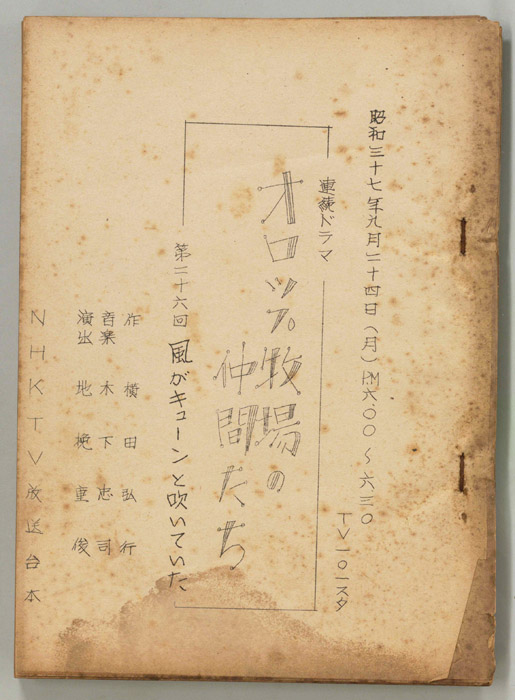 昭和三十七年九月二十四日(月)P.M六.〇〇~六三〇
TV一〇一スタ
連続ドラマ
オロップ牧場の
仲間たち
第二十六回 風がキューンと吹いていた
作 横田弘行
音楽 木下忠司
演出 地挽重俊
NHKTV放送台本